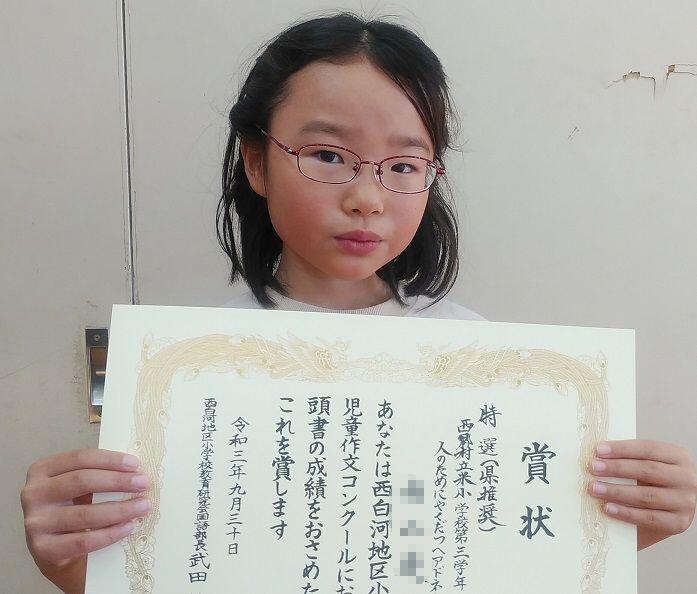 賞状
特選(県推奨)
西郷村立米小学校第三学年
人のためにやくだつヘアドネ
あなたは西白河地区小
児童作文コンクールにお
頭書の成績をおさめた
これを賞します
令和三年九月三十日
西白河地区小学校教育研究会国語部長 武田